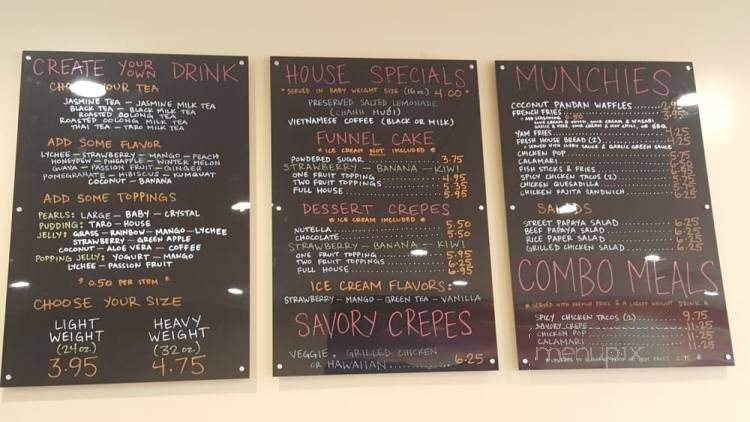 CREATE YOUR OWN DRINK
CHOOSE YOUR TEA
JASMINE TEA - JASMINE MILK TEA
BLACK TEA - BLACK MILK TEA
ROASTED OOLONG TEA
ROASTED OOLONG MILK TEA
THAI TEA - TARO MILK TEA
ADD SOME FLAVOR
LYCHEE - STRAWBERRY - MANGO - PEACH
HONEYDEW - PINEAPPLE - WINTER MELON
GUAVA - PASSION FRUIT - GINGER
POMEGRANATE - HIBISCUS - KUMQUAT
COCONUT - BANANA
ADD SOME TOPPINGS
PEARLS: LARGE - BABY - CRYSTAL
PUDDING: TARO - HOUSE
JELLY: GRASS - RAINBOW - MANGO - LYCHEE
STRAWBERRY - GREEN APPLE
COCONUT - ALOE VERA - COFFEE
POPPING JELLY: YOGURT - MANGO
LYCHEE - PASSION FRUIT
* 0.50 PER ITEM *
CHOOSE YOUR SIZE
LIGHT WEIGHT (24oz.) 3.95
HEAVY WEIGHT (32oz.) 4.75
HOUSE SPECIALS
* SERVED IN BABY WEIGHT SIZE (16oz.) 4.00 *
PRESERVED SALTED LEMONADE
(CHANH MUỐI)
VIETNAMESE COFFEE (BLACK OR MILK)
FUNNEL CAKE
* ICE CREAM NOT INCLUDED *
POWDERED SUGAR 3.75
STRAWBERRY - BANANA - KIWI
ONE FRUIT TOPPING 4.95
TWO FRUIT TOPPINGS 5.35
FULL HOUSE 5.95
DESSERT CREPES
* ICE CREAM INCLUDED *
NUTELLA 5.50
CHOCOLATE 5.50
STRAWBERRY - BANANA - KIWI
ONE FRUIT TOPPING 5.95
TWO FRUIT TOPPINGS 6.25
FULL HOUSE 6.95
ICE CREAM FLAVORS:
STRAWBERRY - MANGO - GREEN TEA - VANILLA
SAVORY CREPES
VEGGIE, GRILLED CHICKEN
OR HAWAIIAN 6.25
MUNCHIES
COCONUT PANDAN WAFFLES
FRENCH FRIES
YAM FRIES 4.25
FRESH HOUSE BREAD (2) 4.25
* SERVED WITH CURRY SAUCE & GARLIC GREEN SAUCE
CHICKEN POP
CALAMARI
FISH STICKS & FRIES
SPICY CHICKEN TACOS (2)
CHICKEN QUESADILLA
CHICKEN FAJITA SANDWICH 6.25
SALADS
STREET PAPAYA SALAD 6.25
BEEF PAPAYA SALAD 6.25
RICE PAPER SALAD 6.25
GRILLED CHICKEN SALAD 6.25
COMBO MEALS
* SERVED WITH FRENCH FRIES & A LIGHT WEIGHT DRINK
SPICY CHICKEN TACOS (2) 9.75
SAVORY CREPE 11.25
CHICKEN POP 11.25
CALAMARI 11.25
menupix